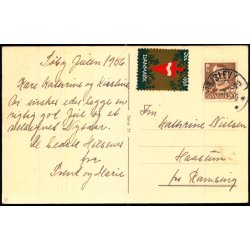 Søby Julen 1966
Kære Kathrine og Kirstine
Vi ønsker eder begge en
rigtig god Jul og et
velsignet Nytaar.
De bedste Hilsener
fra
Svend og Marie
DANMARK
JUL
Frk.
Kathrine Nielsen
Haastrup
pr. Ramsing